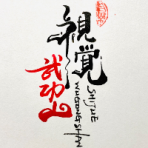 視覺
武功山
SHIJUE
WUGONGSHAN